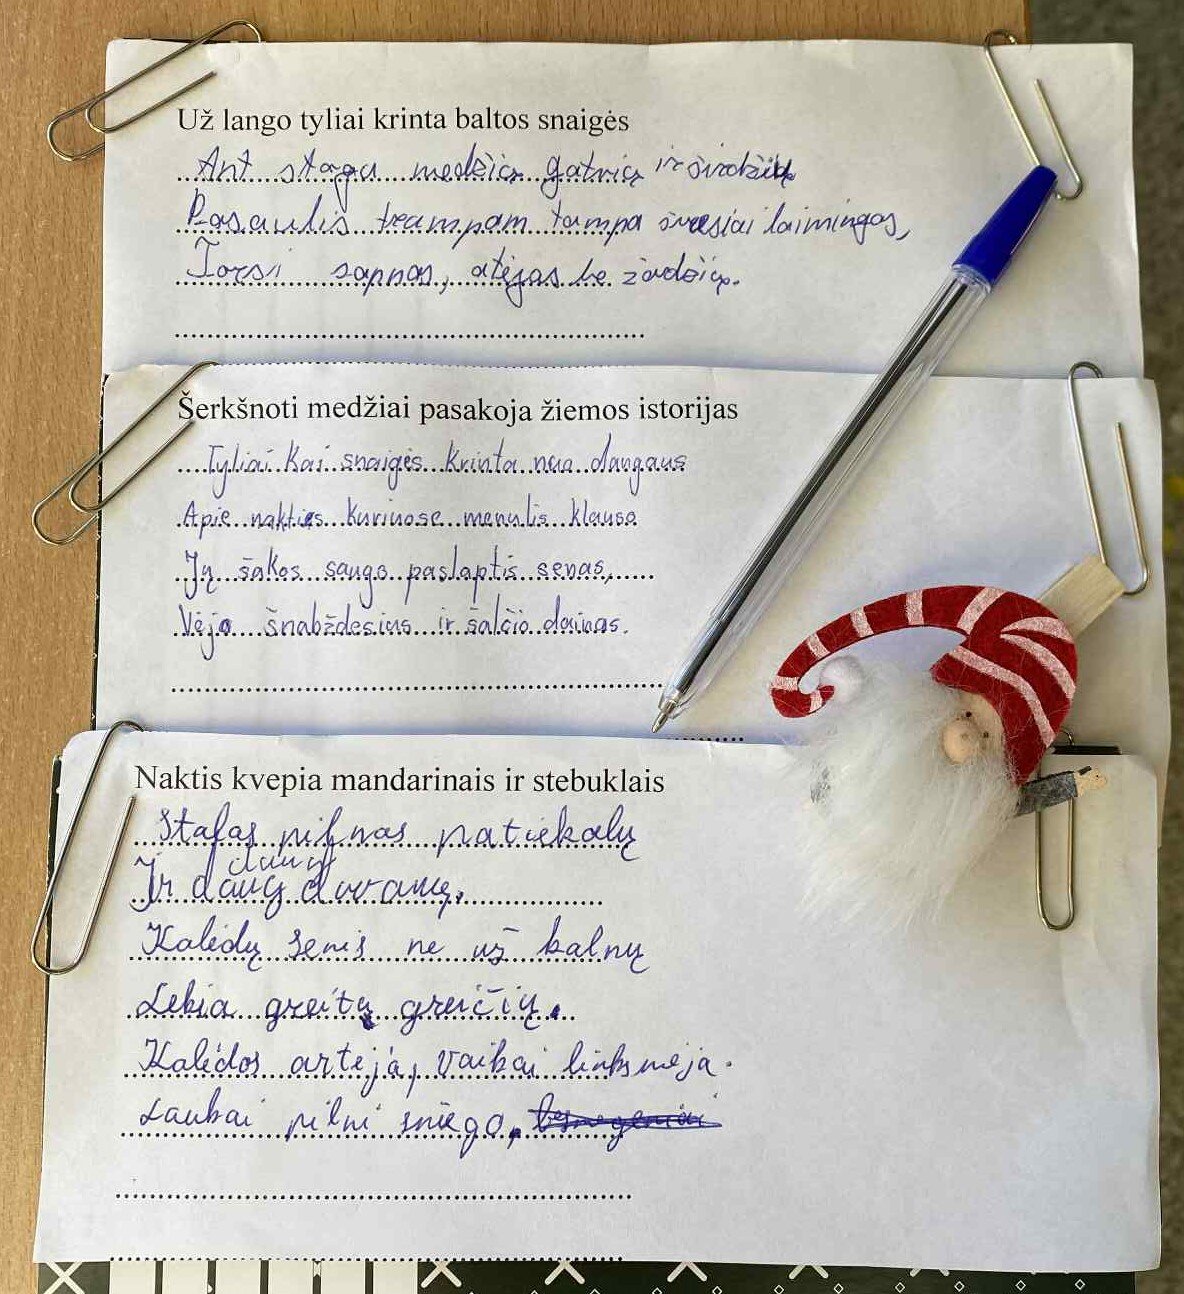 Už lango tyliai krinta baltos snaigės
Ant stogų medžių gatvių ir širdžių
Pasaulis trampam tampa šviesiai laimingas,
Tarsi sapnas, atėjęs be žodžių.
Šerkšnoti medžiai pasakoja žiemos istorijas
Tyliai kai snaigės krinta nuo dangaus
Apie nakties kuriuose menulis klauso
Jų šakos saugo paslaptis senas,
Vėjo šnabždesius ir šalčio dainas.
Naktis kvepia mandarinais ir stebuklais
Stalas pilnas patiekalų
daug
Ir daug dovanų.
Kalėdų senis ne už kalnų
Lekia greitų greičių.
Kalėdos artėja, vaikai linksmėja.
Laukai pilni sniego,